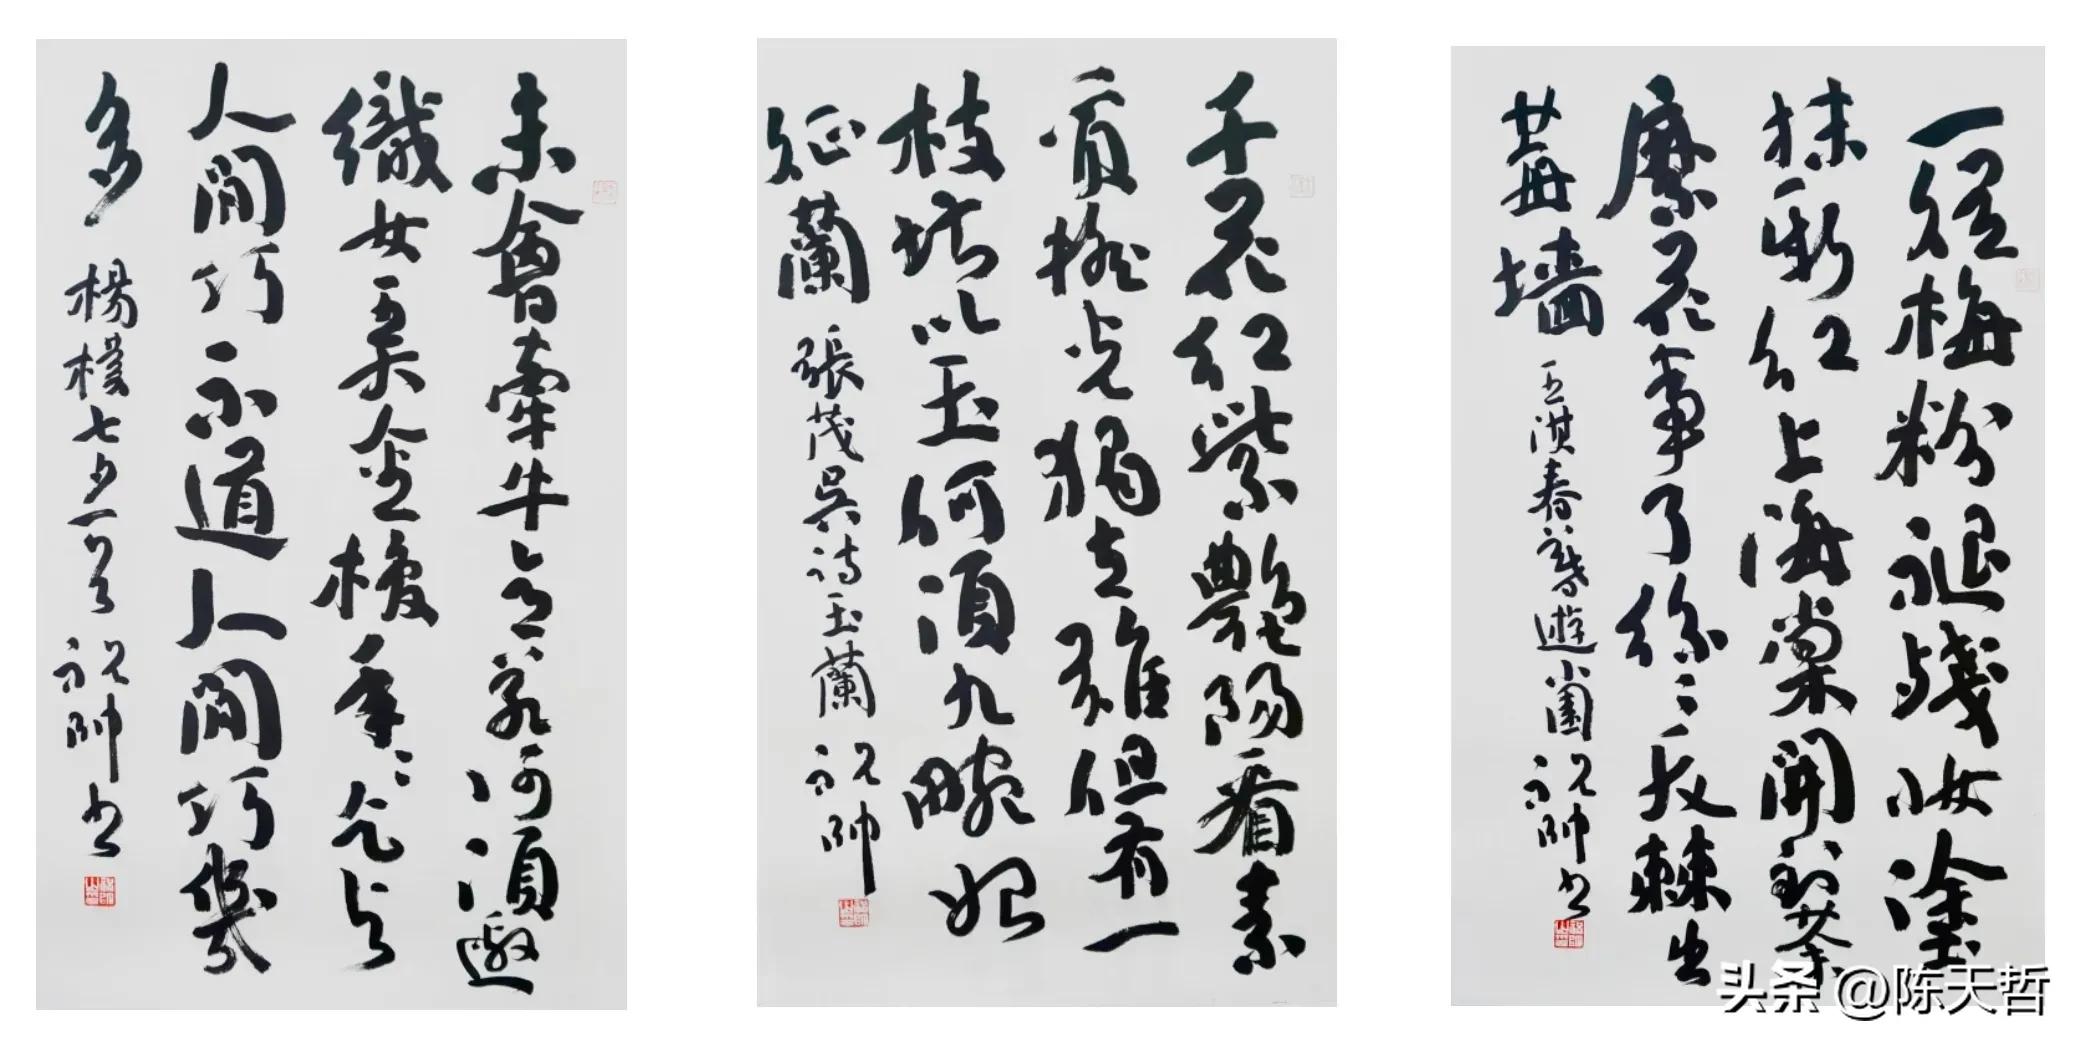 未會牽牛意若何須邀
織女弄金梭年々乞与
人間巧不道人間巧幾
多
楊樸七夕一首 祝帥书
千花紅紫艷陽看素
質搖光獨立難但有一
枝堪比玉何須九畹始
征蘭
張茂吳詩玉蘭 祝帥
一從梅粉褪殘妝塗
抹新紅上海棠開到荼
蘼花事了絲々天棘出
莓墙
王淇春暮遊小園 祝帥书
头条 @陈天哲